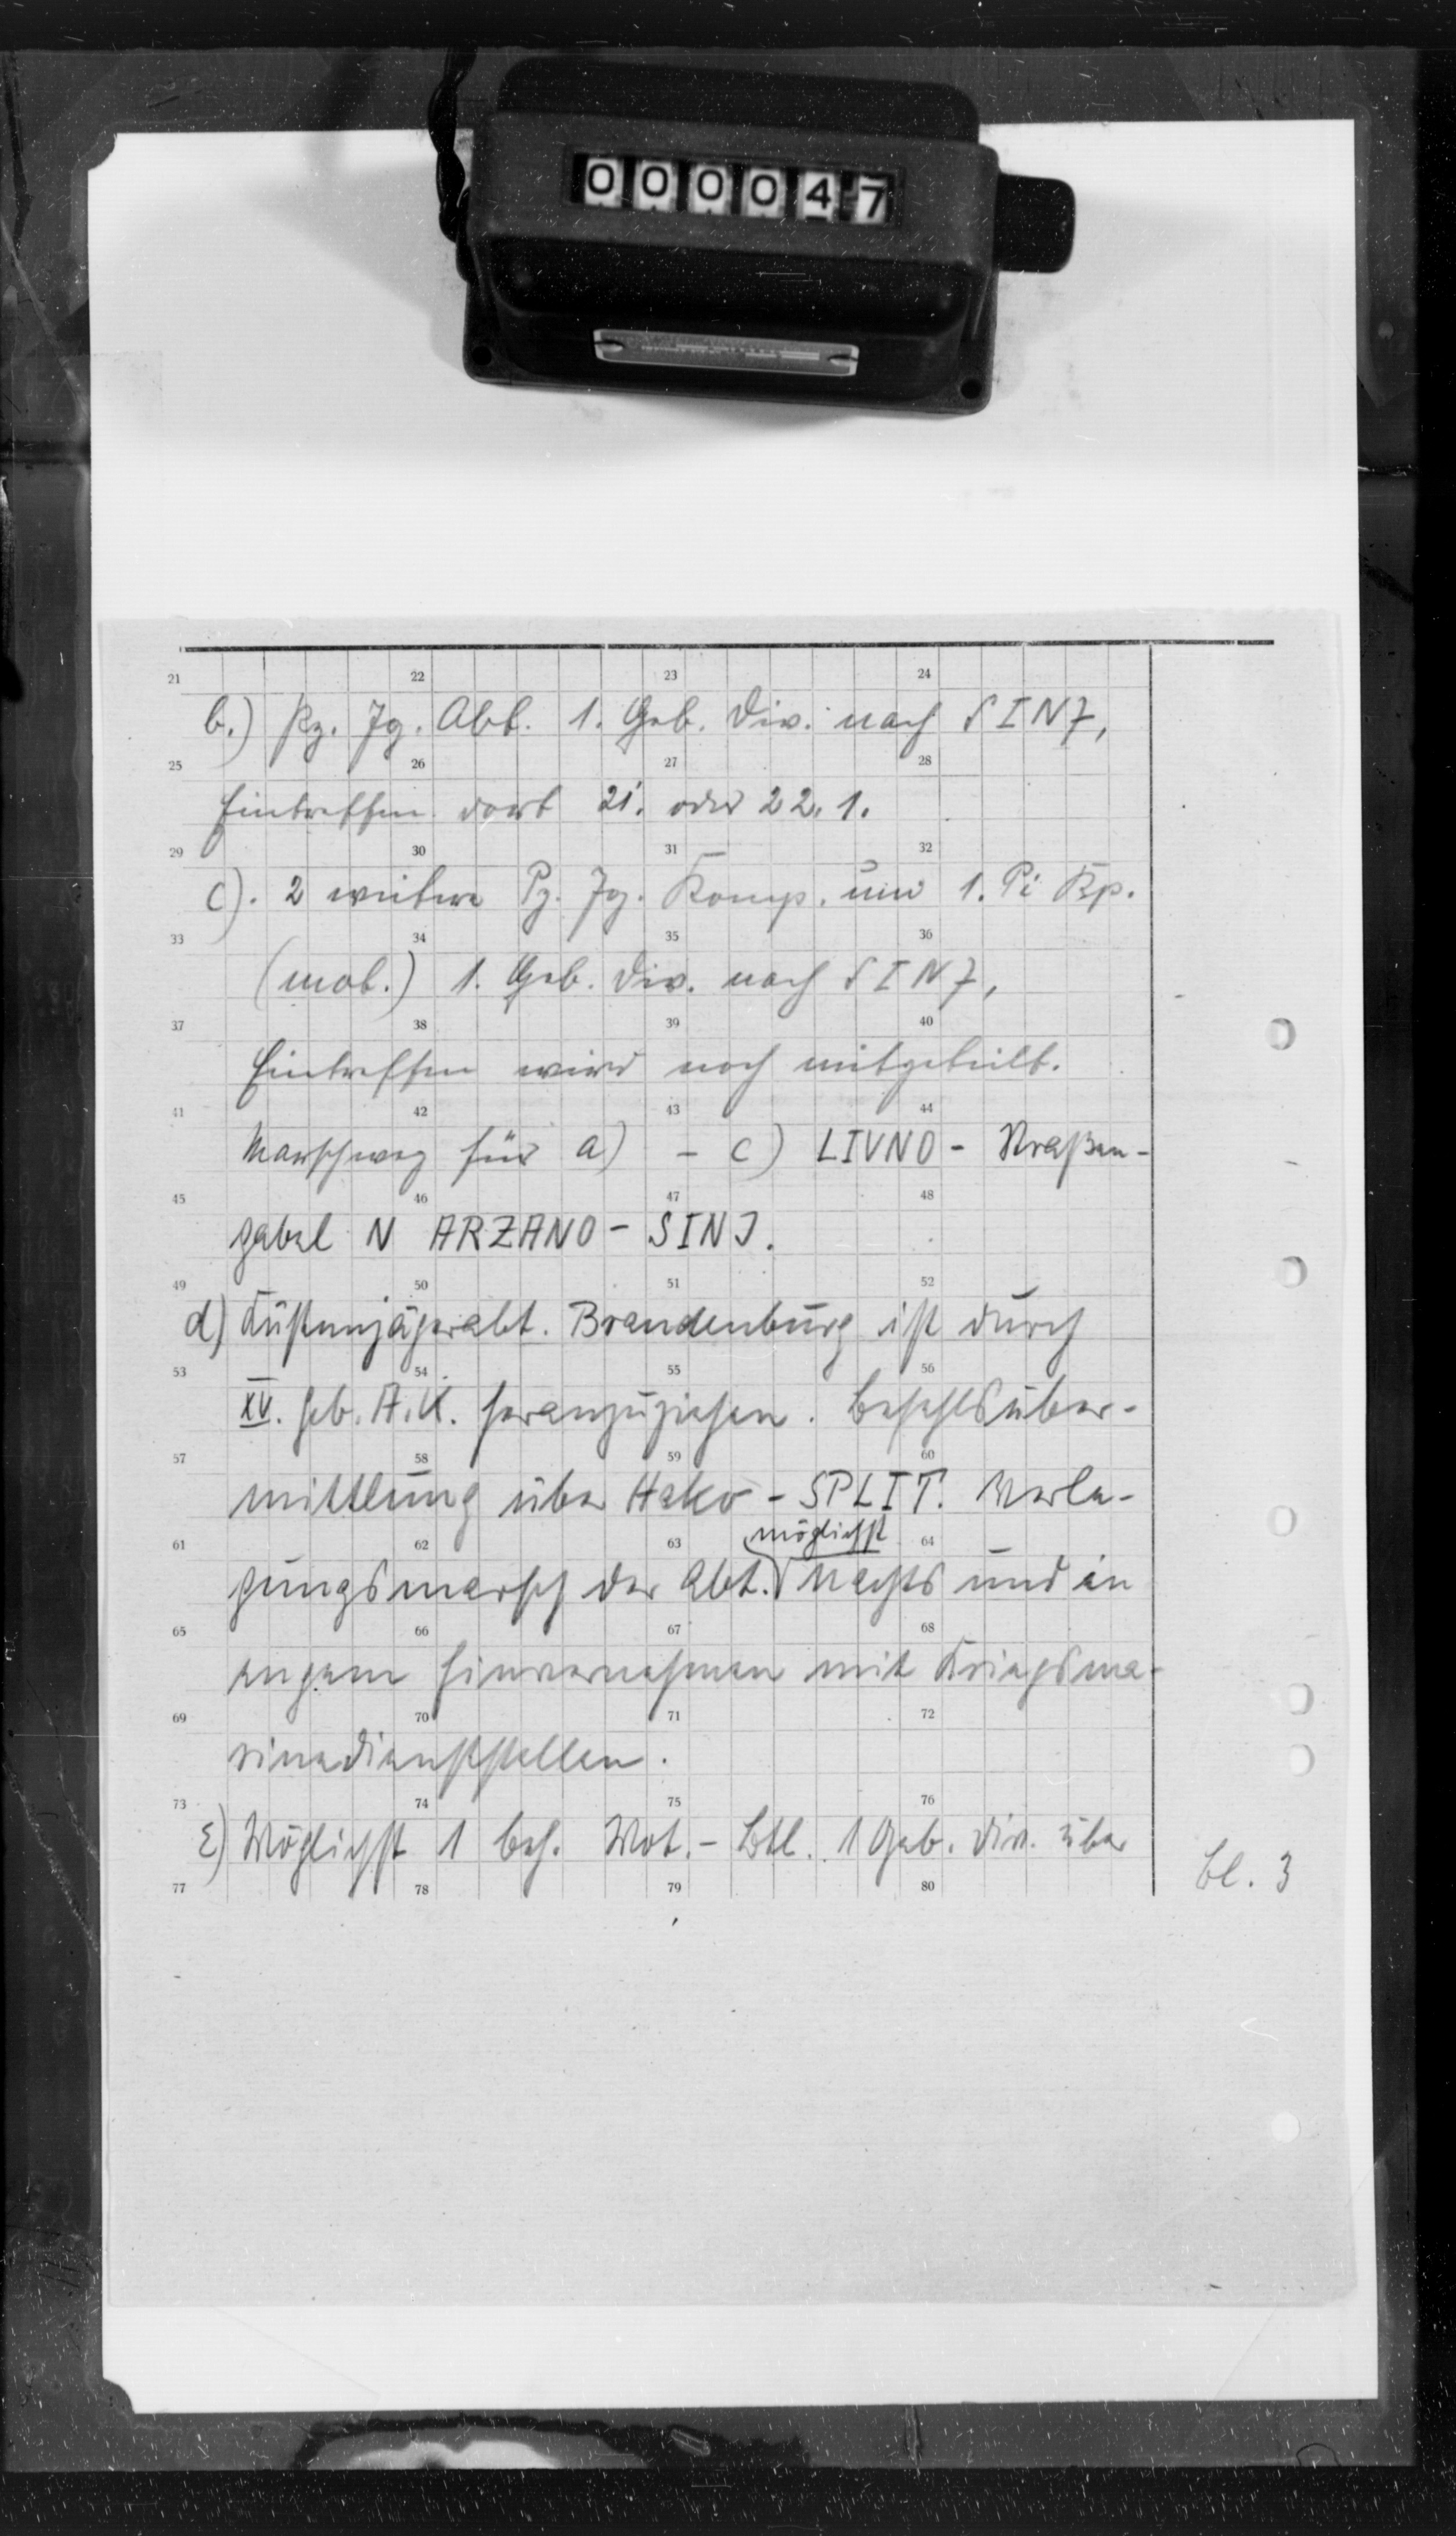 000047
21 22 23 24
b.) Pz. Jg. Abt. 1. Geb. Div. nach SINJ,
25 26 27 28
Eintreffen dort 21. oder 22.1.
29 30 31 32
c). 2 weitere Pz. Jg. Komp. und 1. Pi Kp.
33 34 35 36
(mot.) 1. Geb. Div. nach SINJ,
37 38 39 40
Eintreffen wird noch mitgeteilt.
41 42 43 44
Marschweg für a) - c) LIVNO - Straßen-
45 46 47 48
gabel N ARZANO - SINJ.
49 50 51 52
d) Küstenjägerabt. Brandenburg ist durch
53 54 55 56
XV. Geb. A.K. heranzuziehen. Befehlsüber-
57 58 59 60
mittlung über Hako - SPLIT. Verle-
möglichst
61 62 63 64
gungsmarsch der Abt. nachts und in
65 66 67 68
engem Einvernehmen mit Kriegsma-
69 70 71 72
rinedienststellen.
73 74 75 76
e) Möglichst 1 beh. Mot.-Btl. 1 Geb. Div. über
77 78 79 80
Bl. 3